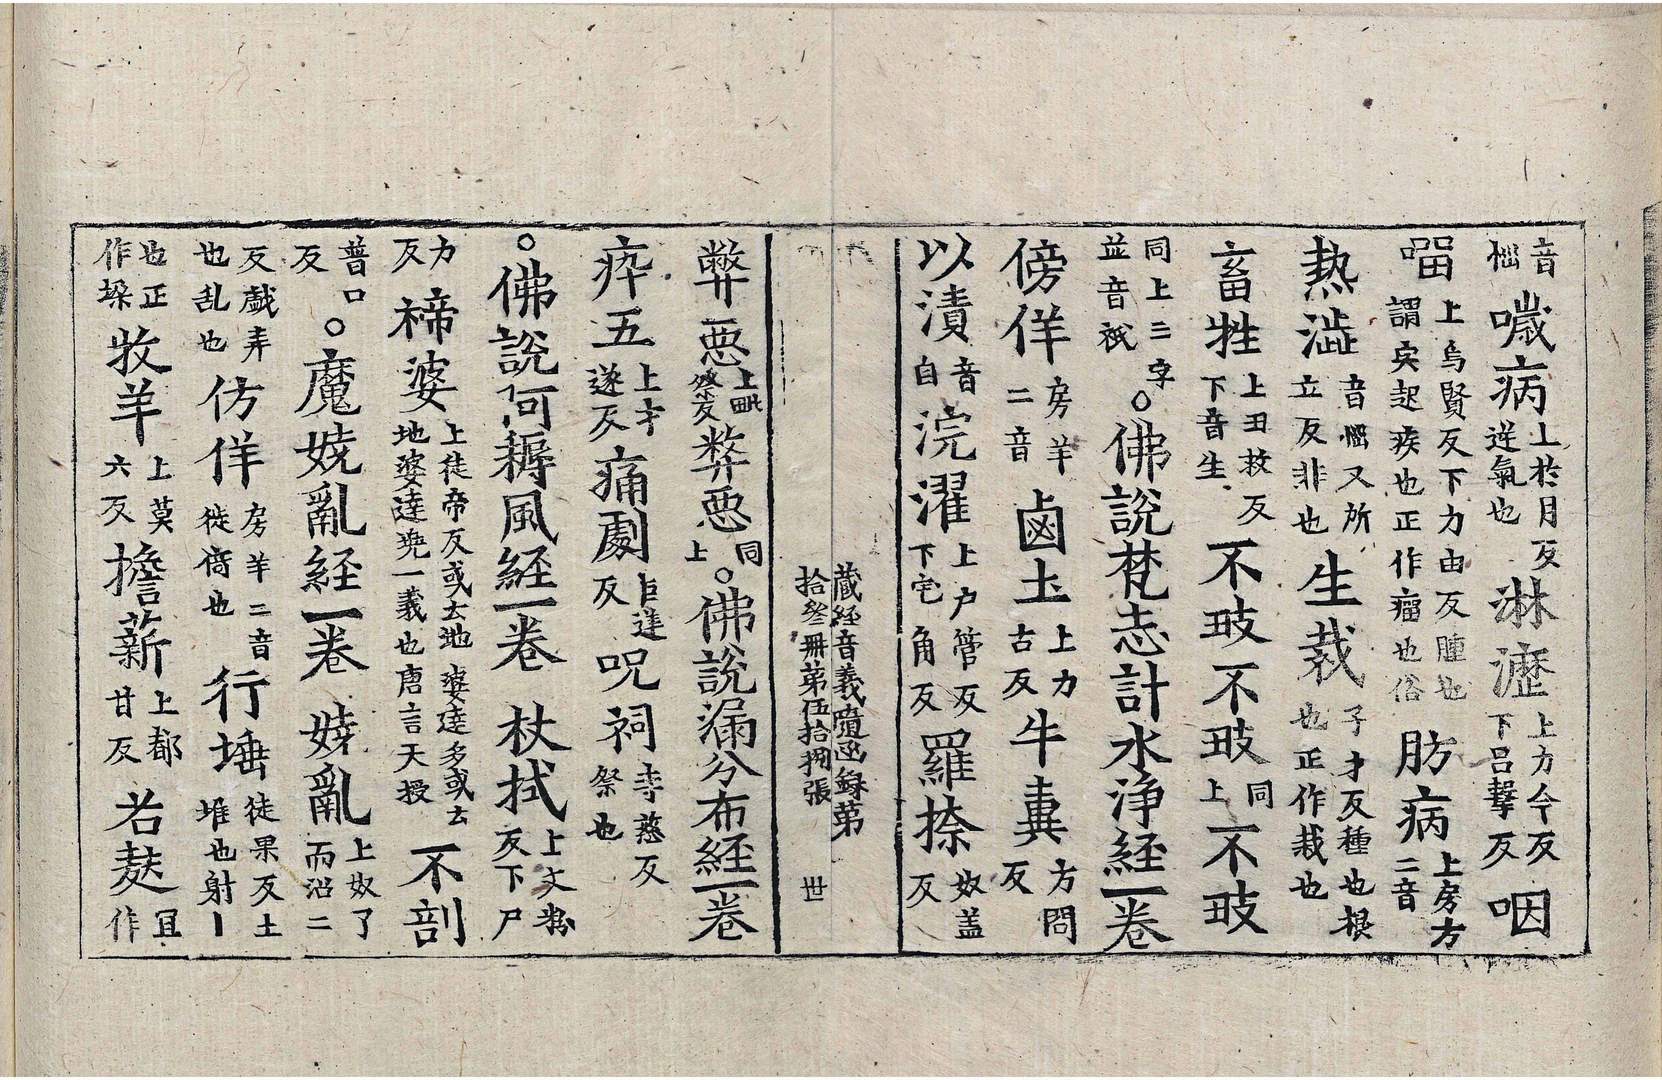 音𢝺噦病上於月反逆氣也淋瀝上力今反下吕擊反咽
㽞上烏賢反下力由反腫也謂宍起疾也正作瘤也俗肪病上房方二音
熱澁音𢝺又所立反非也生栽子才反種也根也正作栽也
畜牲上丑救反下音生不㱿不㱿同上不㱿
同上三字並音祇○佛說梵志計水淨経一卷
傍佯房羊二音鹵土上力古反牛糞方問反
以漬音自浣濯上户管反下宅角反羅㮈奴盖反
藏経音義隨函録第拾叁冊第伍拾捌張 世
弊惡上毗祭反弊惡同上○佛說漏分布経一卷
瘁五上才遂反痛劇巨逆反呪祠寺慈反祭也
○佛說阿耨風経一卷 杖拭上文粉反下尸
力反䄺婆上徒帝反或云地婆達多或云地婆達兠一義也唐言天授不剖
普口反○魔娆亂経一卷 娆亂上奴了反而沼二
反戯弄也乱也仿佯房羊二音徙倚也行埵徒果反土堆也射丨
也正作垜牧羊上莫六反擔薪上都甘反若麨且作